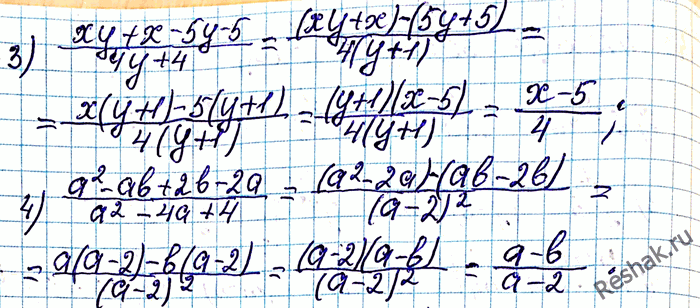 3) (xy+x-5y-5)/(4y+4) = ((xy+x)-(5y+5))/(4(y+1)) =
= (x(y+1)-5(y+1))/(4(y+1)) = ((y+1)(x-5))/(4(y+1)) = (x-5)/4 ;
4) (a²-ab+2b-2a)/(a²-4a+4) = ((a²-2a)-(ab-2b))/((a-2)²) =
= (a(a-2)-b(a-2))/((a-2)²) = ((a-2)(a-b))/((a-2)²) = (a-b)/(a-2) .
Reshak.ru